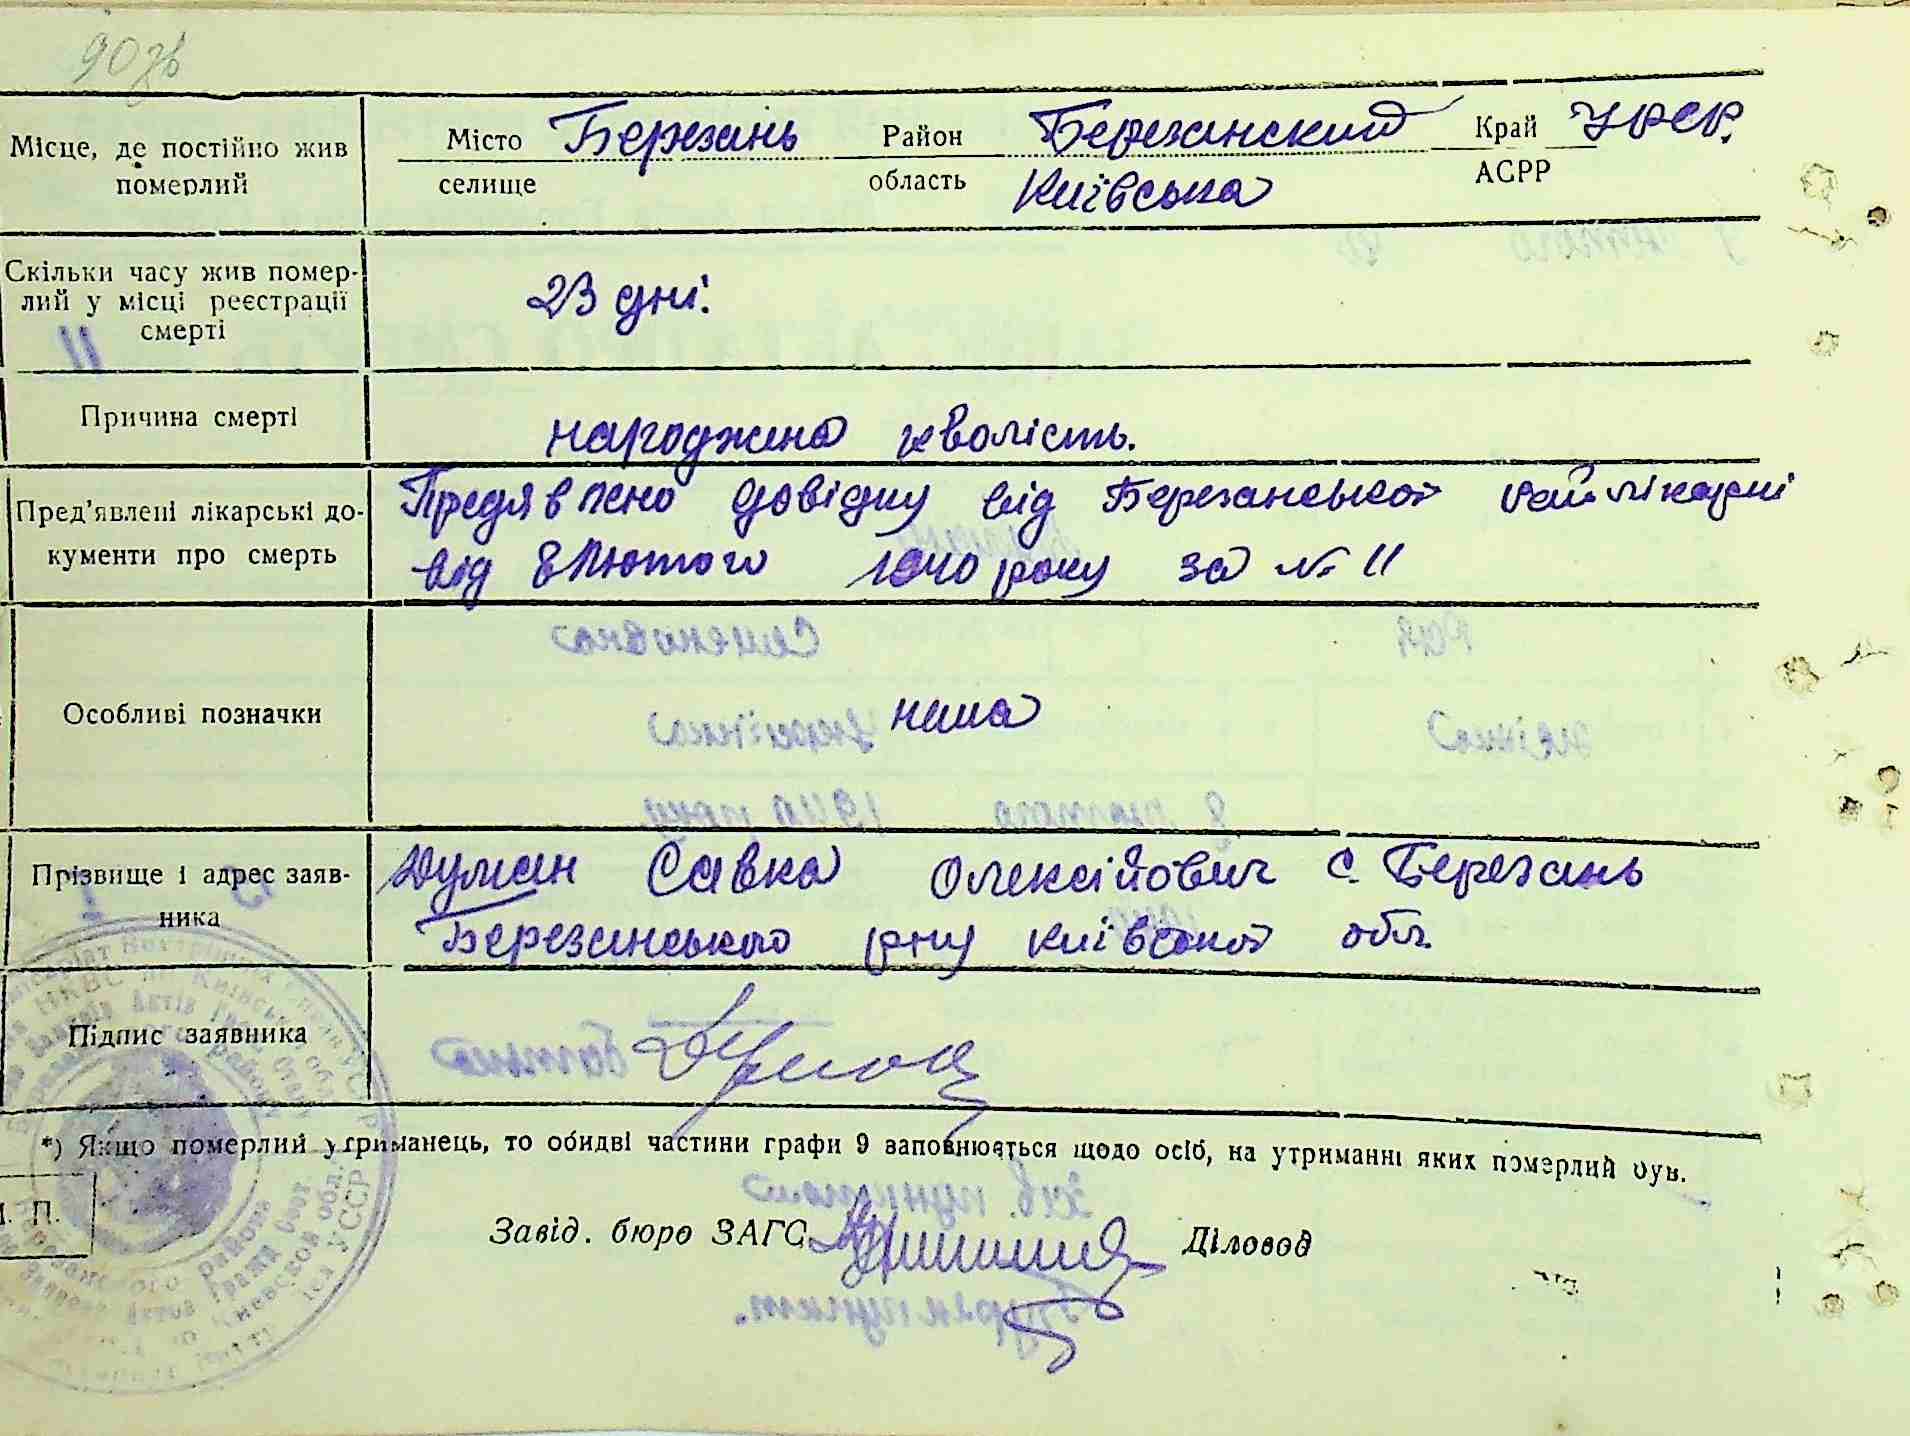 90 зв
Місце, де постійно жив померлий
Місто селище Березань Район область Березанский Край АСРР УРСР.
Київська
Скільки часу жив померлий у місці реєстрації смерті
23 дні.
Причина смерті
народжена кволість.
Пред'явлені лікарські документи про смерть
Предявлено довідку від Березанської райлікарні
від 8 Лютого 1940 року за № 11
Особливі позначки
нема
Прізвище і адрес заявника
Думан Савка Олексійович с. Березань
Березанського рну Київської обл.
Підпис заявника
*) Якщо померлий утриманець, то обидві частини графи 9 заповнюється щодо осіб, на утриманні яких померлий був.
М. П.
Завід. бюро ЗАГС Діловод